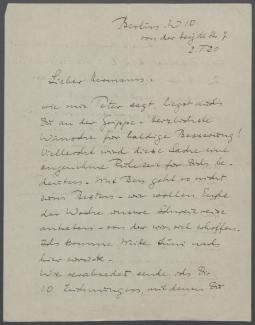 Berlin W 10
von der Heydt Str 7
2. V. 20
Lieber Hermann.
wie mir Peter sagt, liegst auch
Du an der Grippe. Herzlichste
Wünsche für baldige Besserung!
Vielleicht wird diese Sache eine
angenehme Ruhezeit für Dich be-
deuten. Mit Bess geht es nicht
zum Besten. wir wollen Ende
der Woche unsere Schweizreise
antreten - von der wir viel erhoffen.
Ich komme Mitte Juni nach
hier zurück.
Wie verabredet sende ich Dir
10 Zeichnungen, mit denen Du